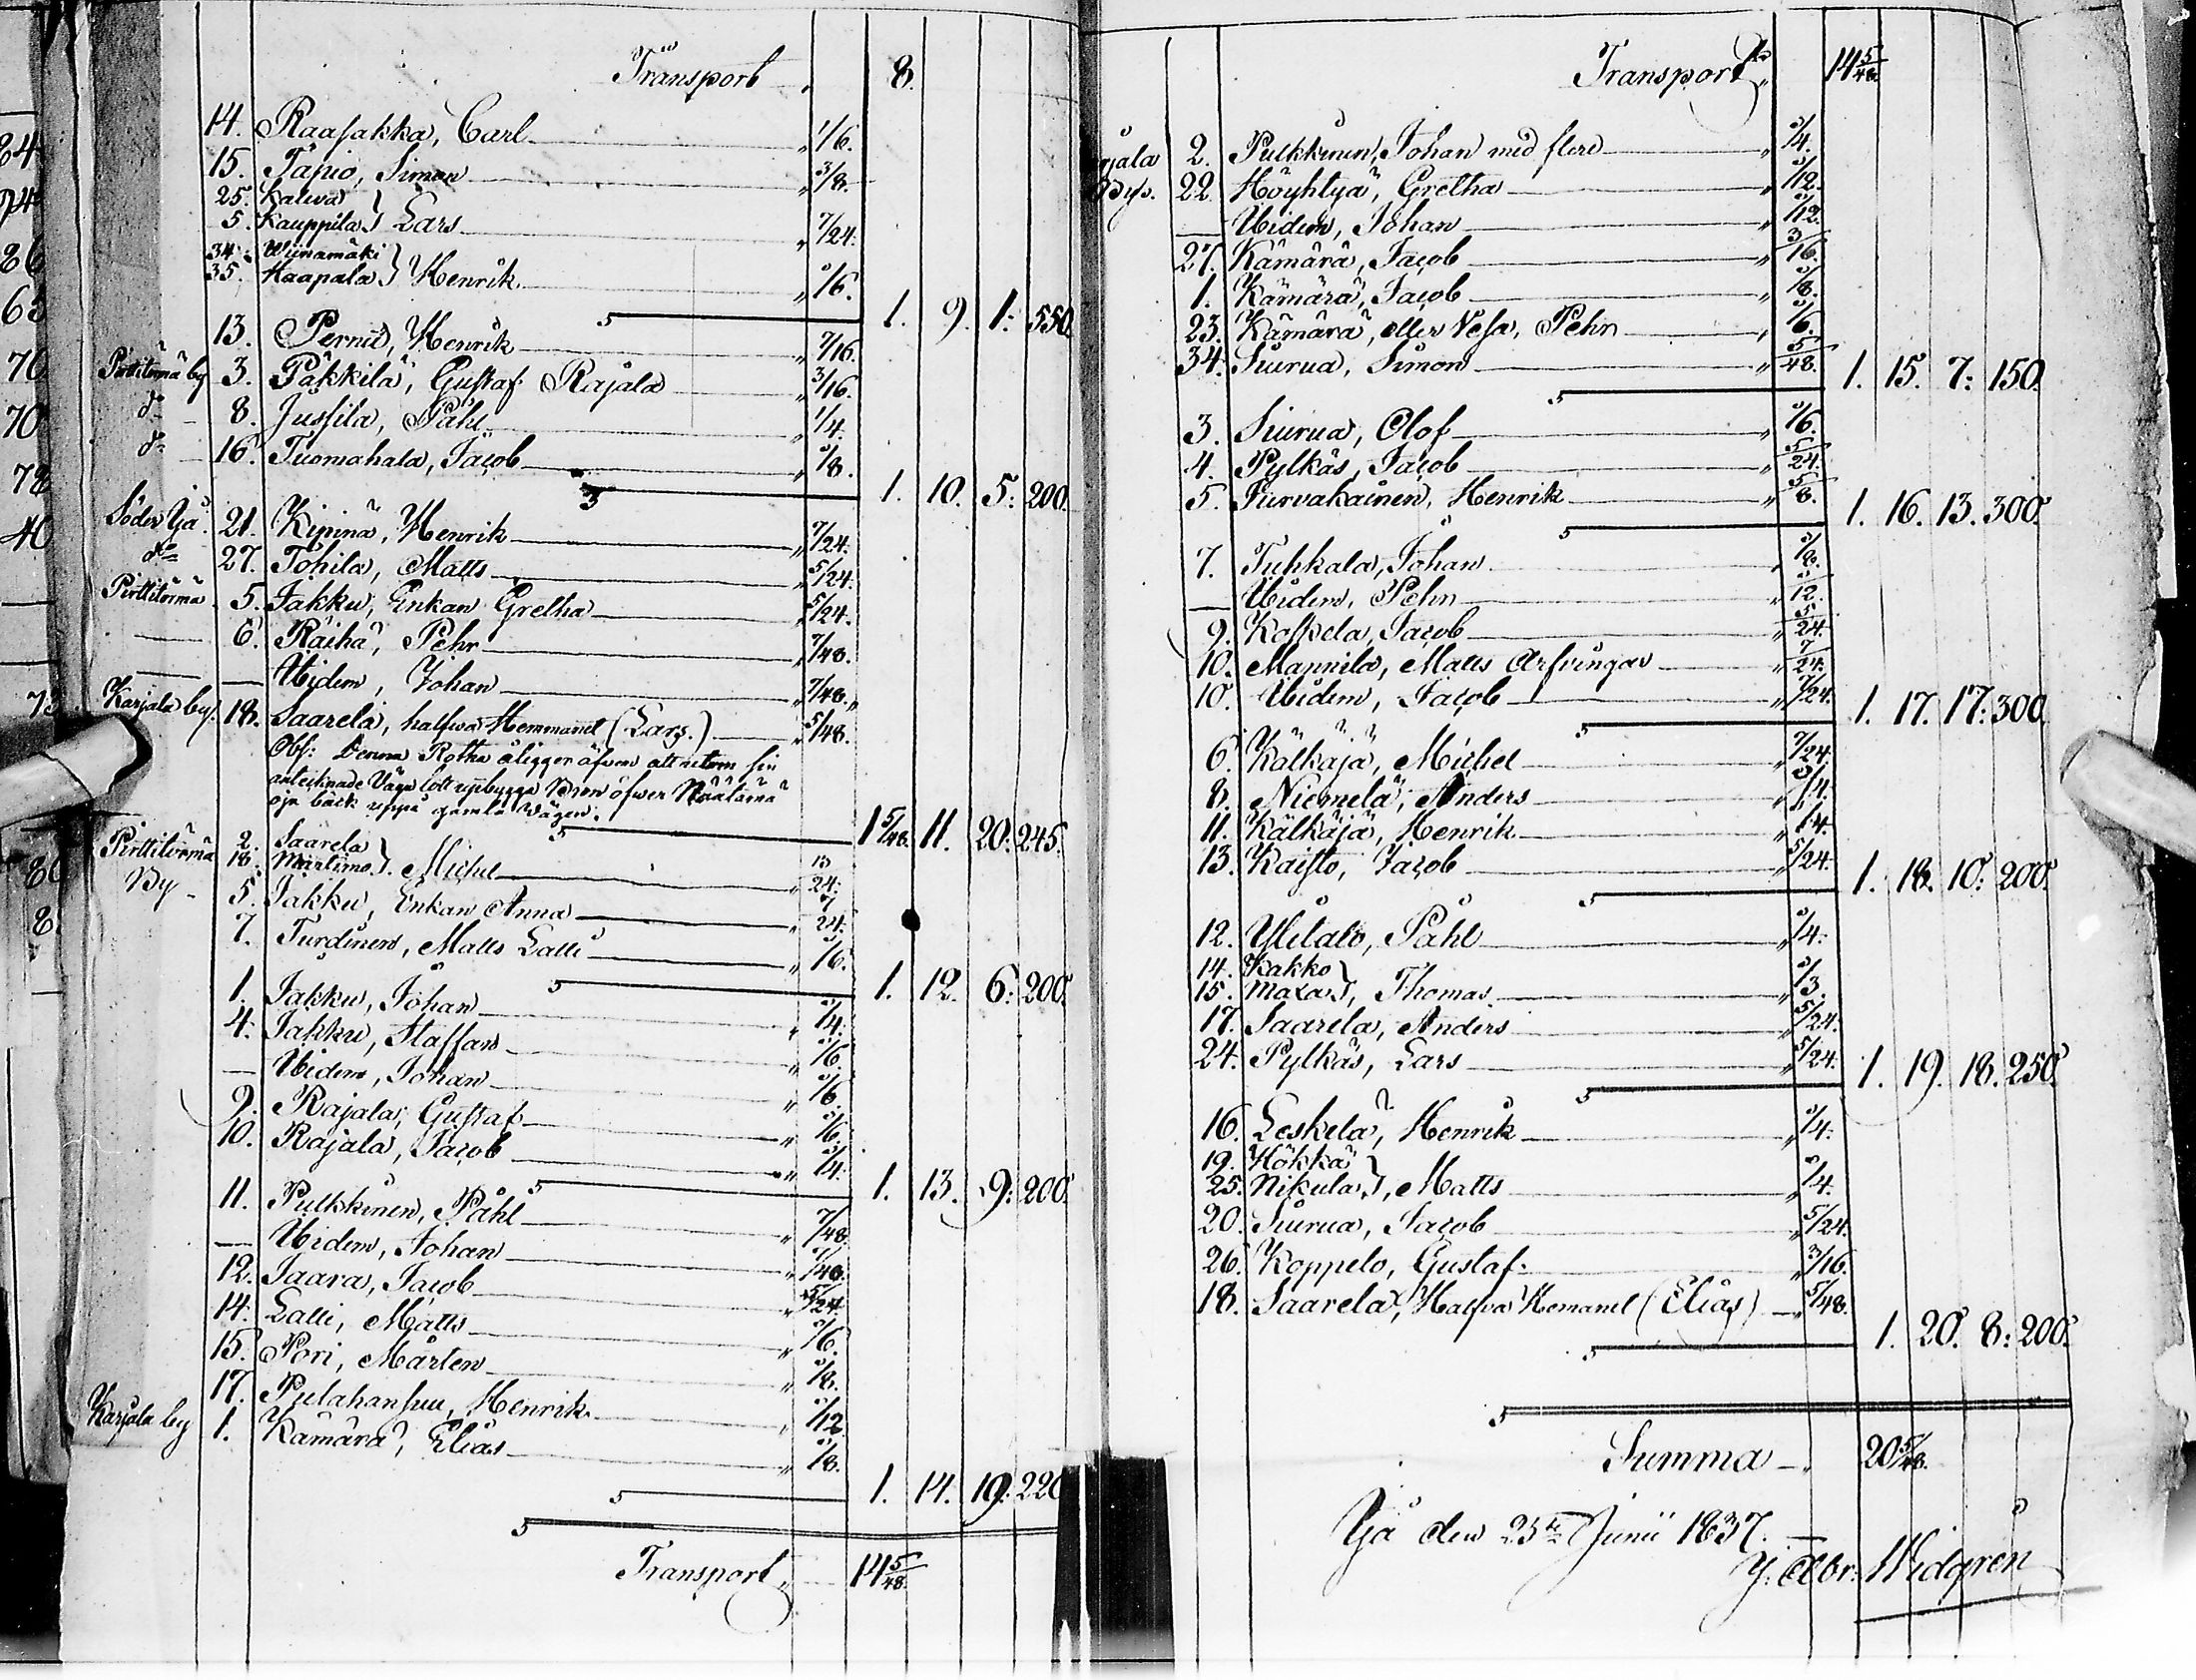 Transport 8.
14. Raasakka, Carl 1/6.
15. Tapio, Simon 3/8.
25. Kaliva
5. Kauppila } Lars 7/24.
34. Wiinamäki
35. Haapala } Henrik 1/6.
1. 9. 1: 550.
13. Pernu, Henrik 7/16.
Pirttitörmä by 3. Päkkilä, Gustaf Rajala 3/16.
do 8. Jussila, Påhl 1/4.
do 16. Tuomahala, Jacob 1/8.
1. 10. 5: 200.
Söder Ijå 21. Kipinä, Henrik 7/24.
do 27. Tohila, Matts 5/24.
Pirttitörmä 5. Jakku, Enkan Gretha 5/24.
6. Räihä, Pehr 7/48.
— Ibidem, Johan 7/48.
Karjala by. 18. Saarela, halfwa Hemmanet (Lars.) 5/48.
Obs: Denna Rotha åligger äfwen att utom sin
antecknade Vägalott uppbygga Bron öfwer Määtämä
oja bäck uppå gamla Vägen.
1 5/48. 11. 20: 245.
Pirttitörmä 2. Saarela
By 18. Martimo } Michel 13/24.
5. Jakku, Enkan Anna 7/24.
7. Turdinen, Matts Lalli 1/6.
1. 12. 6: 200.
1. Jakku, Johan 1/4.
4. Jakku, Staffan 1/6.
— Ibidem, Johan 1/6.
9. Rajala, Gustaf 1/6.
10. Rajala, Jacob 1/4.
1. 13. 9: 200.
11. Pulkkinen, Påhl 7/48.
— Ibidem, Johan 7/48.
12. Jaara, Jacob 5/24.
14. Lalli, Matts 1/6.
15. Pori, Mårten 1/8.
17. Pulahansuu, Henrik 1/12
Karjala by 1. Kämärä, Elias 1/8.
1. 14. 19: 220
Transport 14 5/48.
Transport 14 5/48.
rjala 2. Pulkkinen, Johan med flere 1/4.
By. 22. Höyhtyä, Gretha 1/12.
— Ibidem, Johan 1/12.
27. Kämärä, Jacob 3/16.
1. Kämärä, Jacob 1/8.
23. Kämärä, eller Vesa, Pehr 1/6.
34. Siurua, Simon 5/48.
1. 15. 7: 150.
3. Siurua, Olof 1/6.
4. Pylkäs, Jacob 5/24.
5. Turvakainen, Henrik 5/8.
1. 16. 13. 300.
7. Tuhkala, Johan 1/8.
— Ibidem, Pehr 1/12.
9. Koskela, Jacob 5/24.
10. Mannila, Matts Arfvingar 7/24.
10. Ibidem, Jacob 7/24.
1. 17. 17: 300.
6. Kälkäjä, Michel 7/24.
8. Niemelä, Anders 1/4.
11. Kälkäjä, Henrik 1/4.
13. Kaisto, Jacob 5/24.
1. 18. 10: 200.
12. Ylitalo, Påhl 1/4.
14. Kakko
15. Maxa }, Thomas 1/3.
17. Saarela, Anders 5/24.
24. Pylkäs, Lars 5/24.
1. 19. 18. 250.
16. Leskelä, Henrik 1/4.
19. Hökkä
25. Nikula }, Matts 1/4.
20. Siurua, Jacob 5/24.
26. Koppelo, Gustaf 3/16.
18. Saarela, Halfwa Hemanet (Elias) 5/48.
1. 20. 8: 200.
Summa 20 5/48.
Ijå den 25te Junii 1837.
J. Abr. Widgrén